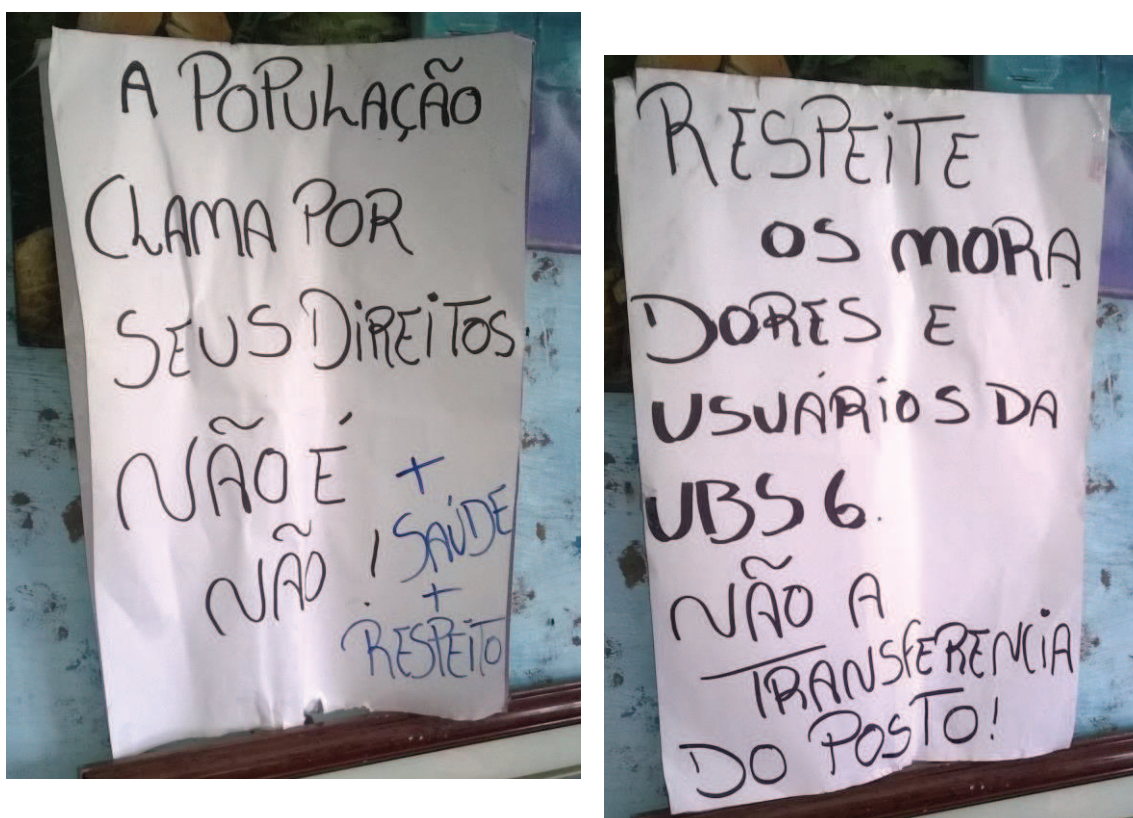 A POPULAÇÃO
CLAMA POR
SEUS DIREITOS
NÃO É
NÃO !
+
SAÚDE
+
RESPEITO
RESPEITE
OS MORA
DORES E
USUÁRIOS DA
UBS 6.
NÃO A
TRANSFERENCIA
DO POSTO!